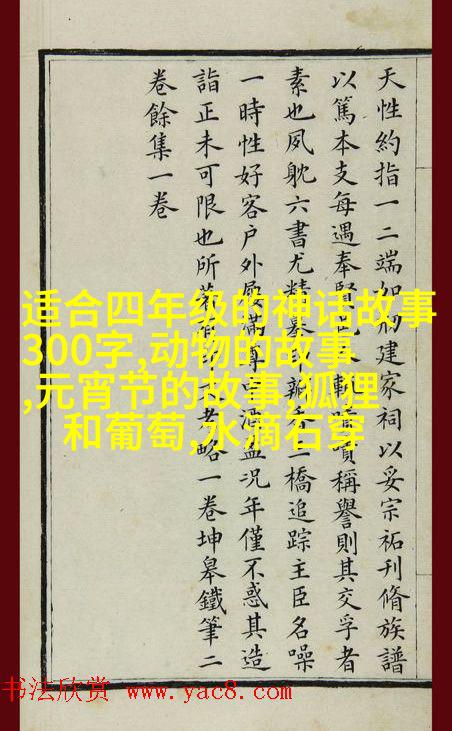 适合四年级的神话故事
300字,动物的故事
,元宵节的故事,狐狸
和葡萄,水滴石穿
天性約指一二端如刱建家祠以妥宗祏刊脩族譜
以篤本支每遇奉賢邑稱譽則其交孚者
素也夙躭六書尤精摹二橋追踪主臣名噪
一時性好客戶外屨滿尊酒盈況年僅不惑其造
詣正未可限也所著略一卷坤皋鐵筆二
卷餘集一卷
书法欣赏 www.yac8.com